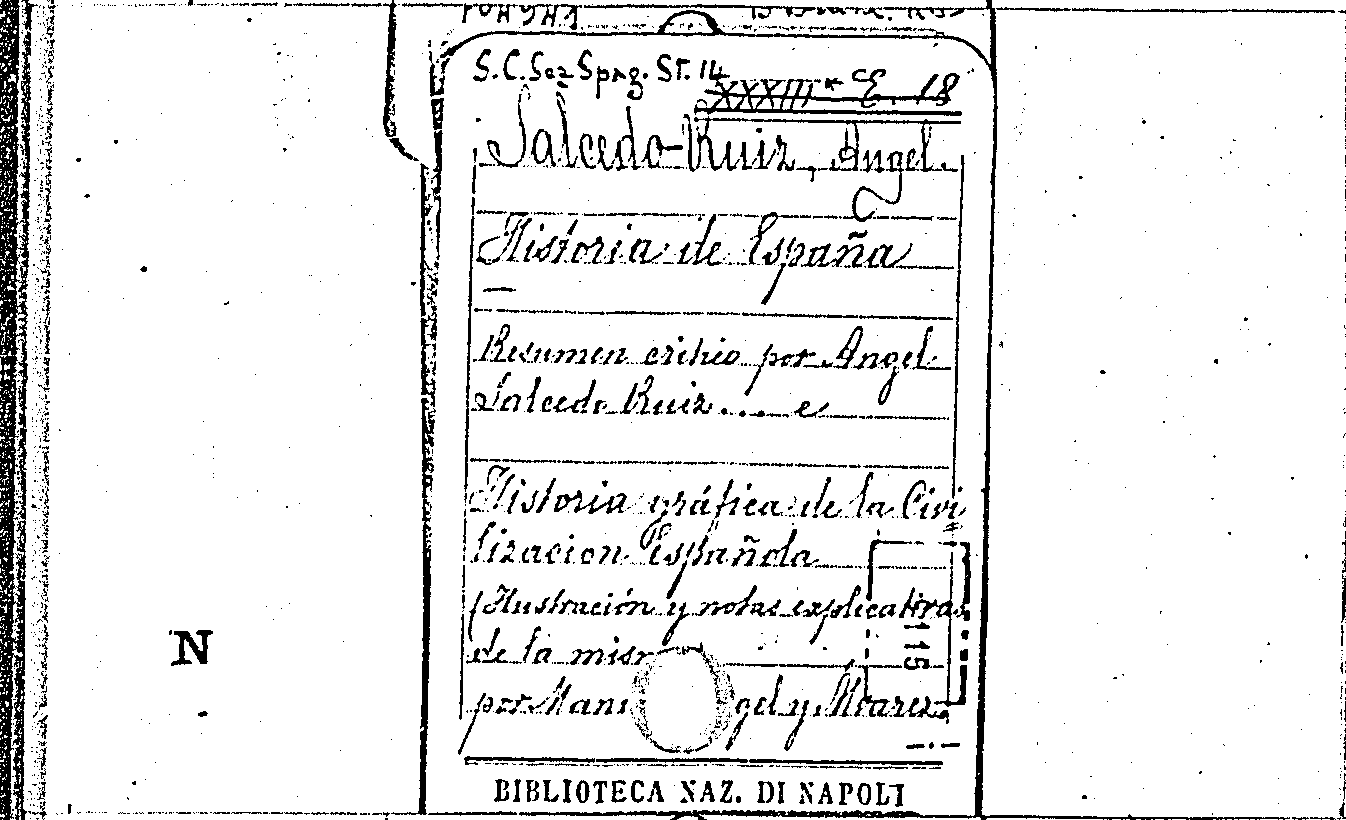 S.C. Sez Spag. St. 14
XXXIII E. 18
Salcedo-Ruiz, Angel.
Historia de España
—
Resumen critico por Angel
Salcedo Ruiz .... e
Historia gráfica de la Civi
lizacion Española
(Ilustración y notas explicativas
de la mis
por Man gel y Alvarez.
115
N
BIBLIOTECA NAZ. DI NAPOLI